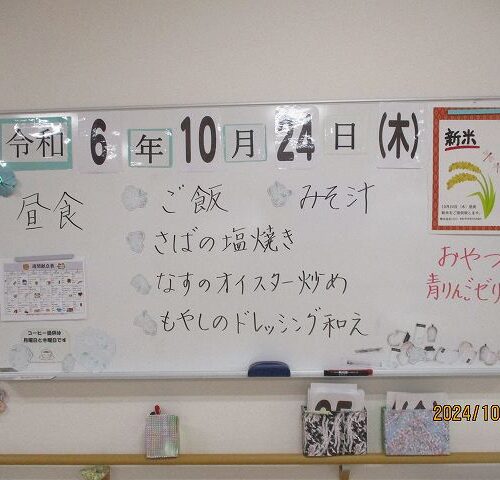 令和 6 年 10 月 24 日 (木)
昼食
ご飯 みそ汁
さばの塩焼き
なすのオイスター炒め
もやしのドレッシング和え
新米
おやつ
青りんごゼリ
コーヒー提供は
月曜日と木曜日です
25
2024/10